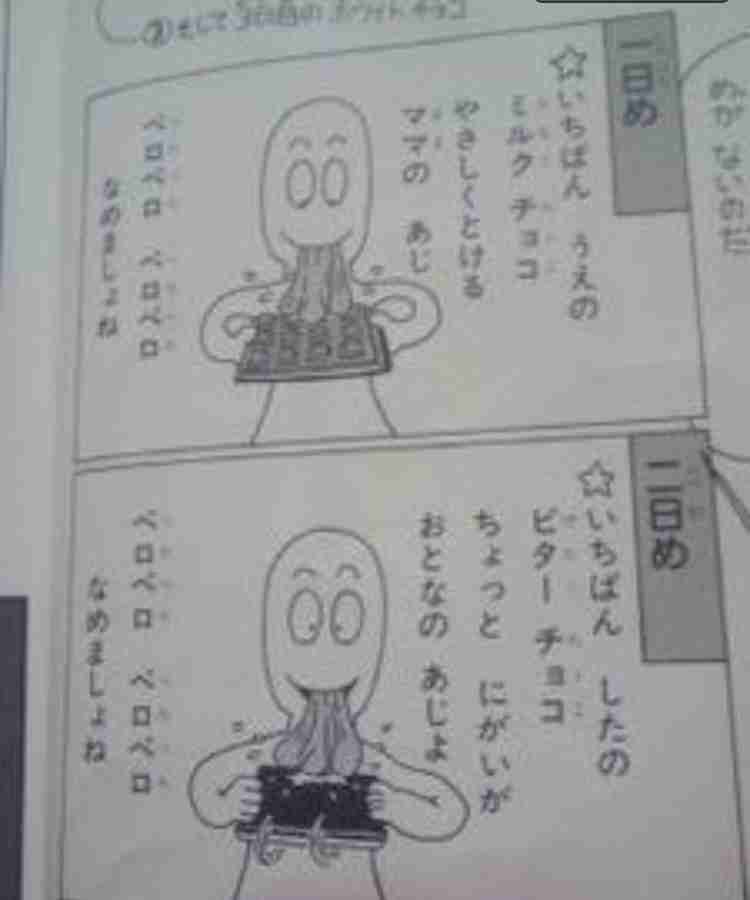 めが ないのだ
そして3日目のホワイトチョコ
一日め
☆いちばん うえの
ミルク チョコ
やさしくとける
ママの あじ
ペロペロ ペロペロ
なめましょね
二日め
☆いちばん したの
ビター チョコ
ちょっと にがいが
おとなの あじよ
ペロペロ ペロペロ
なめましょね